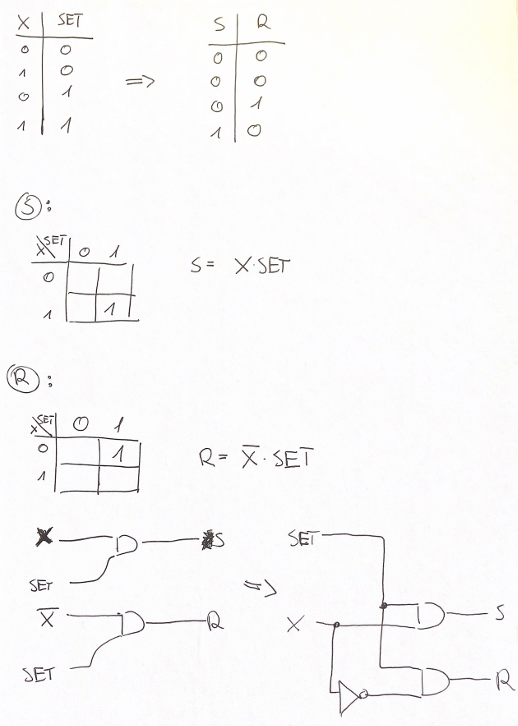 X SET S R
0 0 0 0
1 0 ⇒ 0 0
0 1 0 1
1 1 1 0
S:
X SET 0 1
0
1 1
S = X·SET
R:
X SET 0 1
0 1
1
R = X̅·SET
X S
SET
⇒
X̅ R
SET
SET
X
S
R